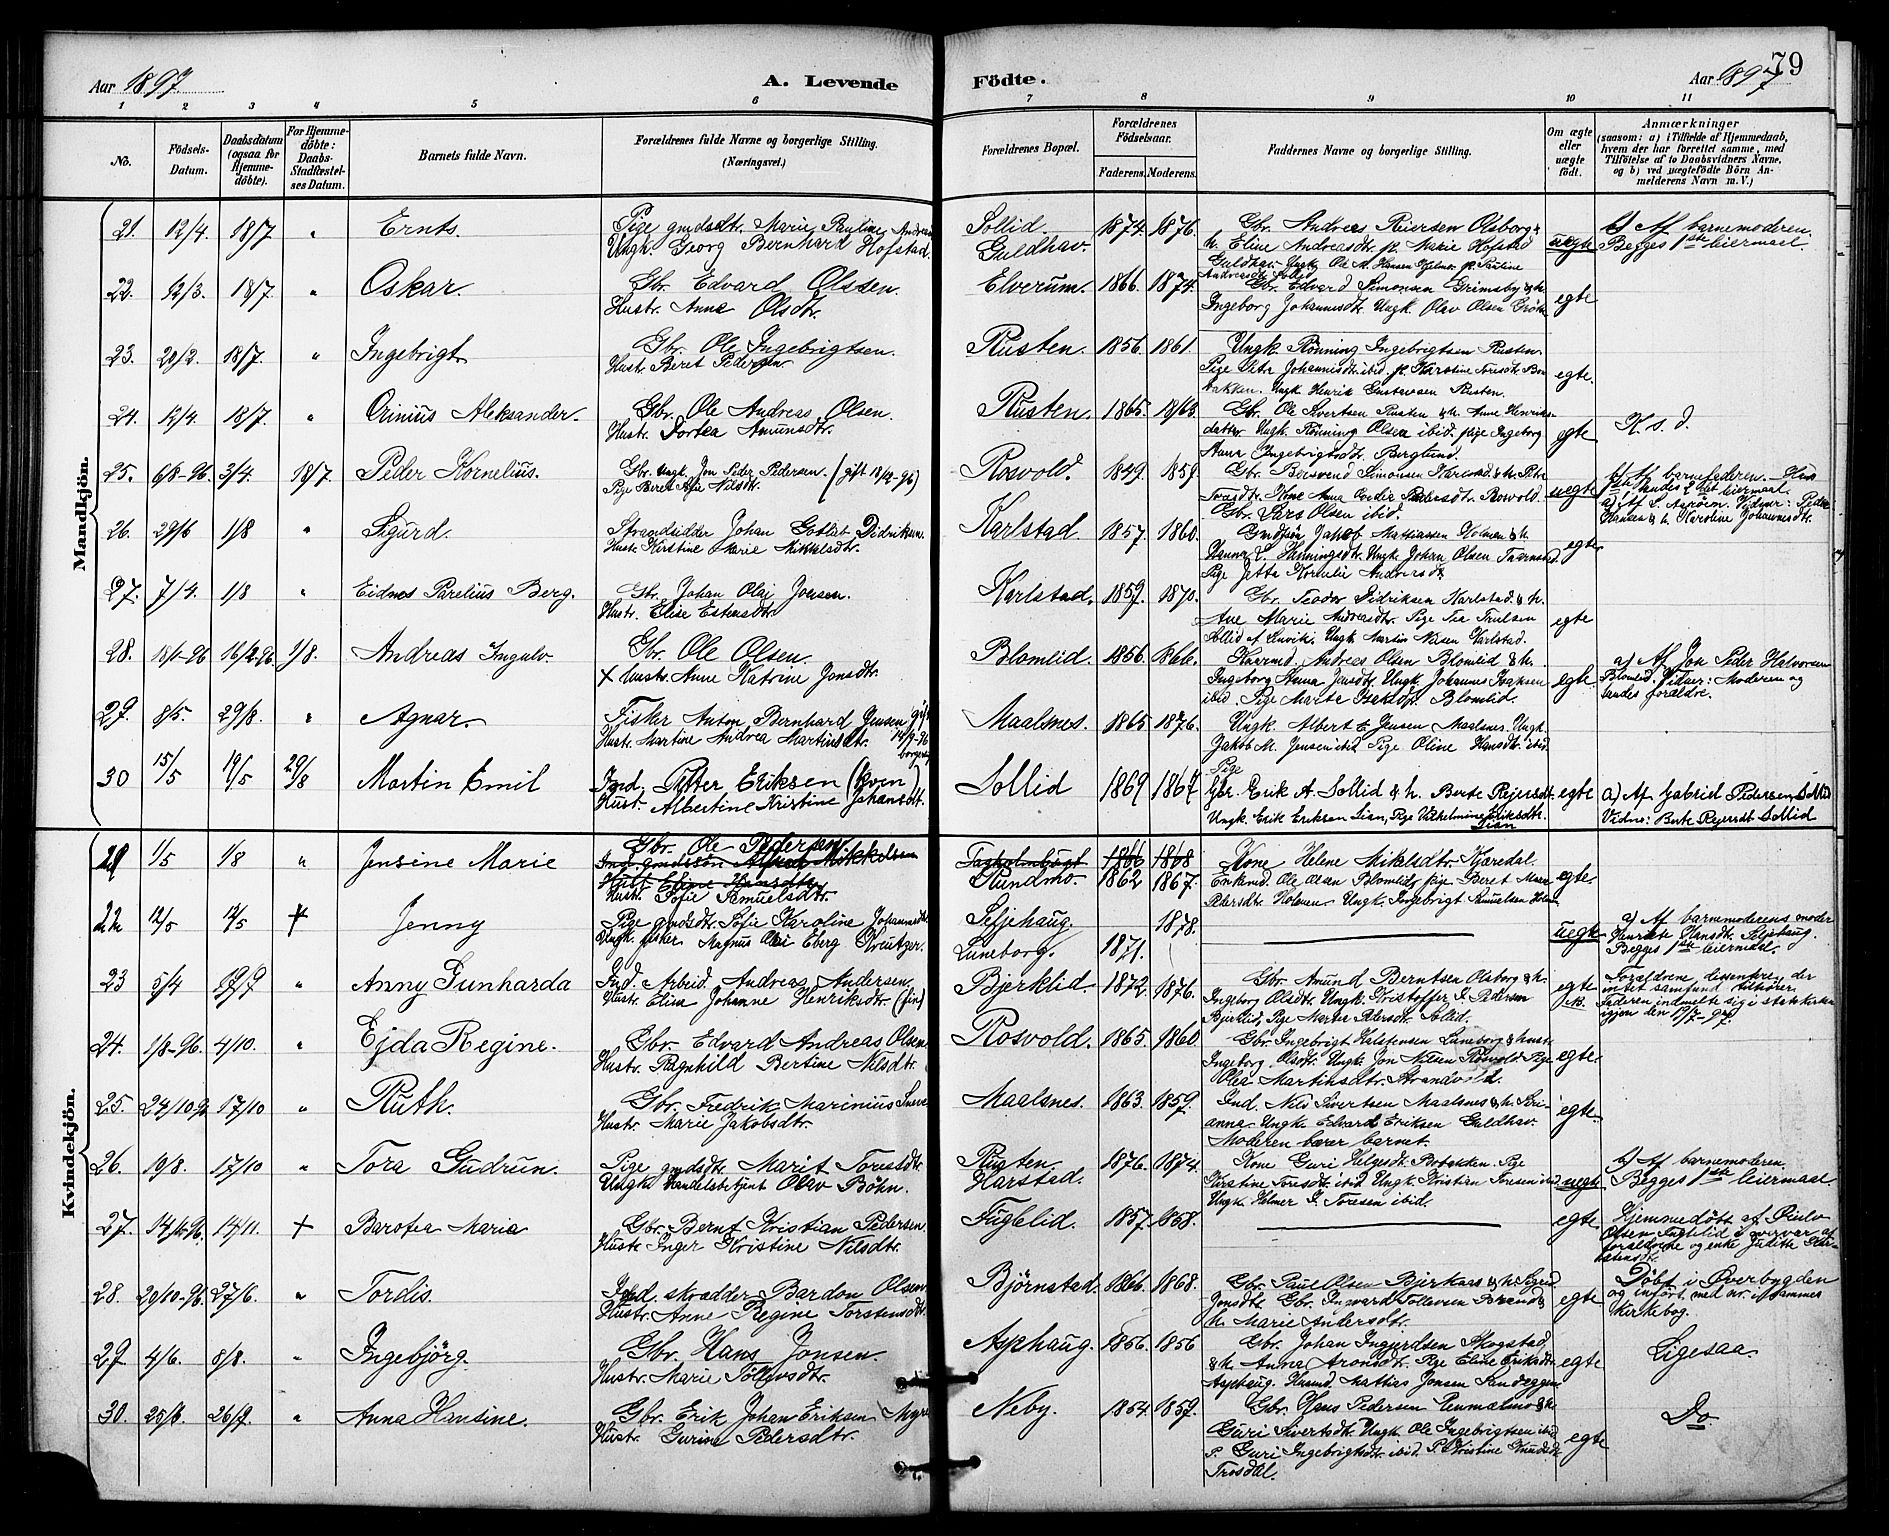 79
Aar 1897. A. Levende Födte. Aar 1897
1 2 3 4 5 6 7 8 9 10 11
No. Födsels-Datum. Daabsdatum (ogsaa for Hjemme-döbte). For Hjemme-döbte: Daabs-Stadfæstel-ses Datum. Barnets fulde Navn. Forældrenes fulde Navne og borgerlige Stilling. (Næringsvei.) Forældrenes Bopæl. Forældrenes Födselsaar. Faderens. Moderens. Faddernes Navne og borgerlige Stilling. Om ægte eller uægte födt. Anmærkninger (saasom: a) i Tilfælde af Hjemmedaab, hvem der har forrettet samme, med Tilföielse af to Daabsvidners Navne, og b) ved uægtefödte Börn An-melderens Navn m. V.)
Mandkjön.
21. 12/4. 18/7 " Ernts. Pige gmdsdtr. Marie Pauline Andrea Sollid. 1874. 1876. Gbr. Andreas Reiersen Olsborg & uegte b) Af barnemoderen.
Ungk. Georg Bernhard Hofstad. Guldhav. h. Eline Andreasdtr. p. Marie Hofstad Begges 1ste leiermaal.
Guldhav. Ungk. Ole M. Hansen p. Pauline
22. 12/3. 18/7 " Oskar. Gbr. Edvard Olsen. Elverum. 1866. 1874. Gbr. Edvard Simonsen Grimsby & h. egte
Hustr. Anna Olsdtr. Ingeborg Johannesdtr. Ungk. Olav Olsen
23. 21/2. 18/7. " Ingebrigt Gbr. Ole Ingebrigtsen. Rusten. 1856. 1861. Ungk. Rönning Ingebrigtsen Rusten. egte.
Hustr. Berit Pedersen Pige Petra Johannesdtr. ibid. p.
bakken. Ungk. Henrik Gustavsen Rusten.
24. 12/4. 18/7. " Orinius Aleksander. Gbr. Ole Andreas Olsen. Rusten. 1865. 1865. Gbr. Ole Sivertsen Rusten & h. Anne Henriks- egte K. s. d.
Hustr. Dortea Amundsdtr. datter. Ungk. Rönning Olsen ibid. pige Ingeborg
Anna Ingebrigtsdtr. Berglund.
25. 6/8-96 3/4. 18/7. Peder Kornelius. Gbr. Ungk. Jon Peder Pedersen. (gift 18/12-96) Rosvold. 1849. 1859. Gbr. Simonsen Karlstad & h. uegte b) Af barnefaderen.
Pige Beret Nilsdtr. Kone Anna Pedersdtr. Rosvold.
Gbr. Lars Olsen ibid.
26. 29/6 1/8 " Sigurd. Strandsidder Johan Gotlab Didriksen. Karlstad. 1857. 1860. Gmdsön Jakob Mathiassen Holmen & h. egte
Hustr. Kirstine Marie Mikkelsdtr. Hanna L. Henningsdtr. Ungk. Johan Olsen
Pige Jetta Kornelie Andreasdtr.
27. 7/4. 1/8 " Eidnes Parelius Berg. Gbr. Johan Olaj Jonsen. Karlstad. 1859. 1870. Gbr. Teodor Didriksen Karlstad & h. egte
Hustr. Elise Estensdtr. Ane Marie Andreasdtr. Pige Tea Trulsen
Sollid af Lenvik. Ungk. Martin Nilsen Karlstad.
28. 18/1-96 16/2-96. 1/8. Andreas Ingulv. Gbr. Ole Olsen. Blomlid. 1856. 1866. Andreas Olsen Blomlid & h. egte a) Af Jon Peder Halvorsen
+ Hustr. Anne Katrine Jonsdtr. Ingeborg Anna Jonsdtr. Ungk. Johannes Isaksen Blomlid. Vidner: Moderen og
ibid. Pige Marte Isaksdtr. Blomlid. sandes forældre.
29. 8/5. 29/8. " Agnar. Fisker Anton Bernhard Jensen gift Maalsnes. 1865 1876. Ungk. Albert E. Jensen Maalsnes. Ungk.
Hustr. Martine Andrea Martinsdtr. 14/9-96 Jakob M. Jensen ibid Pige Oline Hansdtr. ibid.
30 15/5 19/5 29/8 Martin Emil Ind. Petter Eriksen (kven) Sollid 1869 1867 Pige
Hust. Albertine Kristine Johansdt. Gbr. Erik A. Sollid & h. Berte Rejersdt. egte a) Af Gabriel Pedersen Sollid
Ungk. Erik Eriksen Lian, Pige Vilhelmine Eriksdt. Lian Vidne: Berte Rejersdt Sollid
Kvindekjön.
21 1/5 1/8 " Jensine Marie Gbr. Ole Pedersen. 1866 1868 Kone Helene Mikelsdtr. Kjæredal. egte.
Ind. gmdssön Alfred Mikkelsen
Hustr. Eline Hansdtr. Rundmo. 1862 1867. Enkemd. Ole Olsen Blomlid, pige Beret
Hustr. Sofie Samuelsdtr. Petersdtr. Holmen Ungk. Ingebrigt Knudsen Holm.
22 12/5 12/5 + Jenny Pige gmdsdtr. Sofie Karoline Johannesdtr. Seljehaug. 1878. uegte a) Af barnemoderens moder
Ungk. fisker Magnus Olai Eberg Kreutzer. Luneborg. 1871. Henriete Hansdtr. Seljehaug.
Begges 1ste leiermaal.
23 5/4 19/7 " Anny Gunharda Ind. Arbeid. Andreas Andersen. Bjerklid. 1872. 1876. Gbr. Amund Berntsen Olsborg & h. egte Forældrene dissentere der
Hustr. Elen Johanne Henriksdtr. (fin) Ingeborg Olsdtr. Ungk. Kristoffer J. Pedersen intet samfund tilhörer.
Bjerklid, Pige Marta Petersdtr. Sollid. Faderen indmelte sig i statskirken
igjen den 17/7-97.
24. 1/8-96. 4/10. " Ejda Regine. Gbr. Edvard Andreas Olsen Rosvold. 1865. 1860. Gbr. Ingebrigt Halstensen Luneborg & hust. egte.
Hustr. Ragnhild Bertine Nilsdtr. Ingeborg Olsdtr. Ungk. Jon Nilsen Rosvold Pige
Olea Martinsdtr. Strandvold.
25. 24/10-9 17/10 " Ruth. Gbr. Fredrik Marinius Maalsnes. 1863. 1859. Ind. Nils Sivertsen Maalsnes & h. egte.
Hustr. Marie Jakobsdtr. anna. Ungk. Edvard Eriksen Guldhav.
Moderen bærer barnet.
26. 19/8. 17/10 " Tora Gudrun. Pige gmdsdtr. Marit Toresdtr. Rusten 1876. 1874. Kone Guri Helgesdtr. Bobakken. Pige uegte b) Af barnemoderen.
Ungk. handelsbetjent Olav Böhn. Harstad. Kirstine Toresdtr. ibid Ungk. Kristian Toresen ibid Begges 1ste leiermaal
Ungk. Helmer J. Toresen ibid.
27. 14/11-96. 14/11. + Barotea Maria Gbr. Bernt Kristian Pedersen. Fuglelid. 1857. 1858. egte. Hjemmedöbt af
Hustr. Inger Kristine Nilsdtr. Olsen Fuglelid i nærvær af
forældrene og enke Judith
28. 29/10-96. 27/6. " Tordis. Ind. skrædder Bardon Olsen Björnstad. 1866. 1868. Gbr. Paul Olsen Bjerkaas & h. egte Döbt i Överbygden
Hustr. Anne Regine Torstensdtr. Jonsdtr. Gbr. Ingvard Tollevsen og infört med nr. i sammes
h. Marie Andersdtr. kirkebog.
29. 4/6. 8/8. " Ingebjörg. Gbr. Hans Jonsen. Asphaug. 1856. 1856 Gbr. Johan Ingjerdsen Skogstad egte Ligesaa.
Hustr. Marie Tollevsdtr. & h. Anna Aronsdtr. Pige Eline Eriksdtr.
Asphaug. Husmd. Mattias Jonsen Sandeggen
30. 25/6. 26/9. " Anna Hansine. Gbr. Erik Johan Eriksen Myre Neby. 1854. 1859. Gbr. Hans Pedersen & h. egte Do.
Hustr. Gurine Pedersdtr. Guri Sivertsdtr. Ungk. Ole Ingebrigtsen ibid
P. Guri Ingebrigtsdtr. ibid. P. Kristine Knudsdtr.
Trosdal.